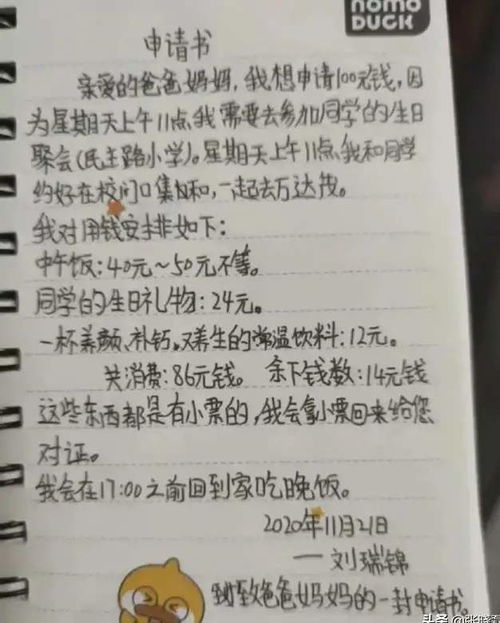 nomo
DUCK
申请书
亲爱的爸爸妈妈,我想申请100元钱,因
为星期天上午11点我需要去参加同学的生日
聚会(民主路小学)。星期天上午11点我和同学
约好在校门口集合和,一起去万达茂。
我对用钱安排如下:
中午饭:40元~50元不等。
同学的生日礼物:24元。
一杯养颜、补钙,又养生的常温饮料:12元。
共消费:86元钱。 余下钱数:14元钱
这些东西都是有小票的,我会拿小票回来给您
对证。
我会在17:00之前回到家吃晚饭。
2020年11月21日
——刘瑞锦
致爸爸妈妈的一封申请书。